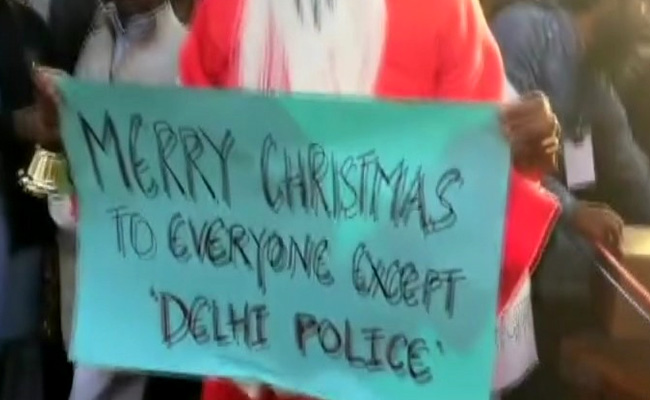 MERRY CHRISTMAS
TO EVERYONE EXCEPT
'DELHI POLICE'